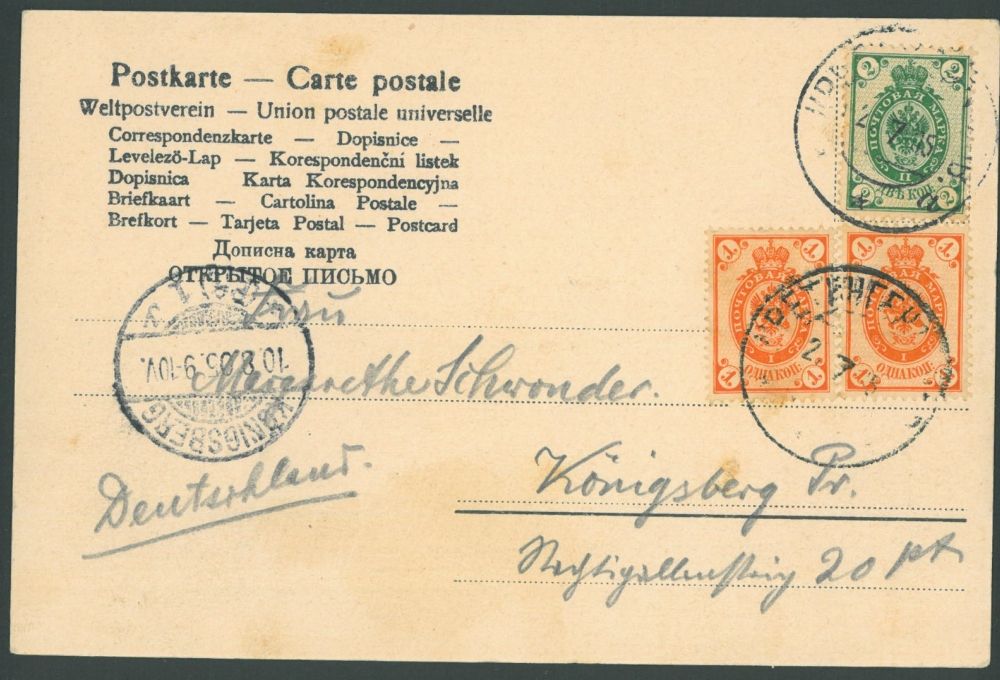 Postkarte — Carte postale
Weltpostverein — Union postale universelle
Correspondenzkarte — Dopisnice —
Levelező-Lap — Korespondenční listek
Dopisnica Karta Korespondencyjna
Briefkaart — Cartolina Postale —
Brefkort — Tarjeta Postal — Postcard
Дописна карта
ОТКРЫТОЕ ПИСЬМО
2 2
ПОЧТОВАЯ МАРКА
II
ДВѢ КОП.
2 2
1 1
ПОЧТОВАЯ МАРКА
I
ОДНА КОП.
1 1
1 1
ПОЧТОВАЯ МАРКА
I
ОДНА КОП.
1 1
2. 7
KÖNIGSBERG
10.8.05. 9-10V.
Frau
Margarethe Schwonder.
Königsberg Pr.
Deutschland.
Nachtigallensteig 20 pt